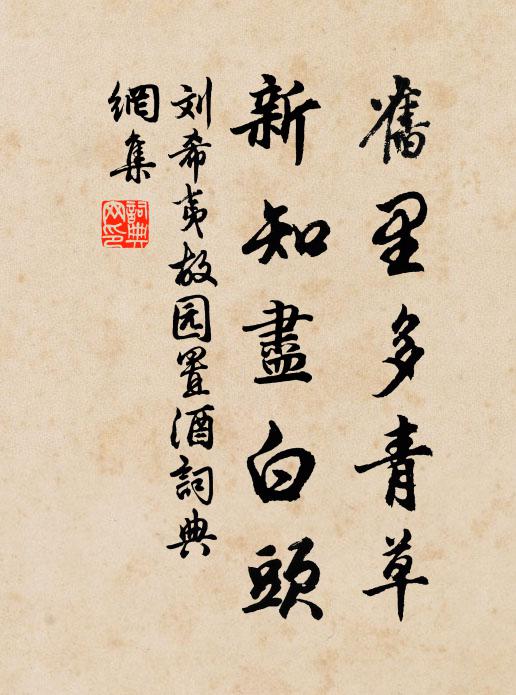 舊里多青草
新知盡白頭
刘希夷故园置酒詞典
網集
詞典
网印